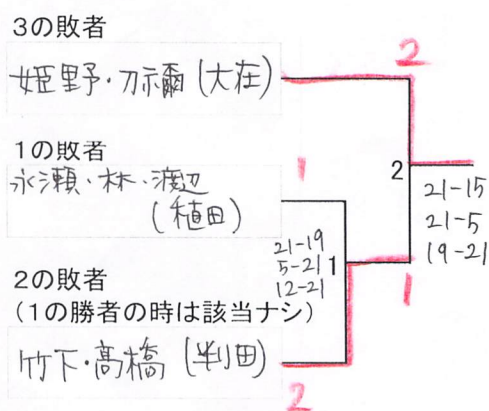 3の敗者
姫野・刀祢(大在)
2
1の敗者
永瀬・林・渡辺
(稙田)
1
2
21-15
21-5
19-21
21-19
5-21
12-21
1
1
2の敗者
(1の勝者の時は該当ナシ)
竹下・髙橋(判田)
2